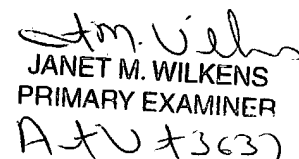 JANET M. WILKENS
PRIMARY EXAMINER
A+U+3637